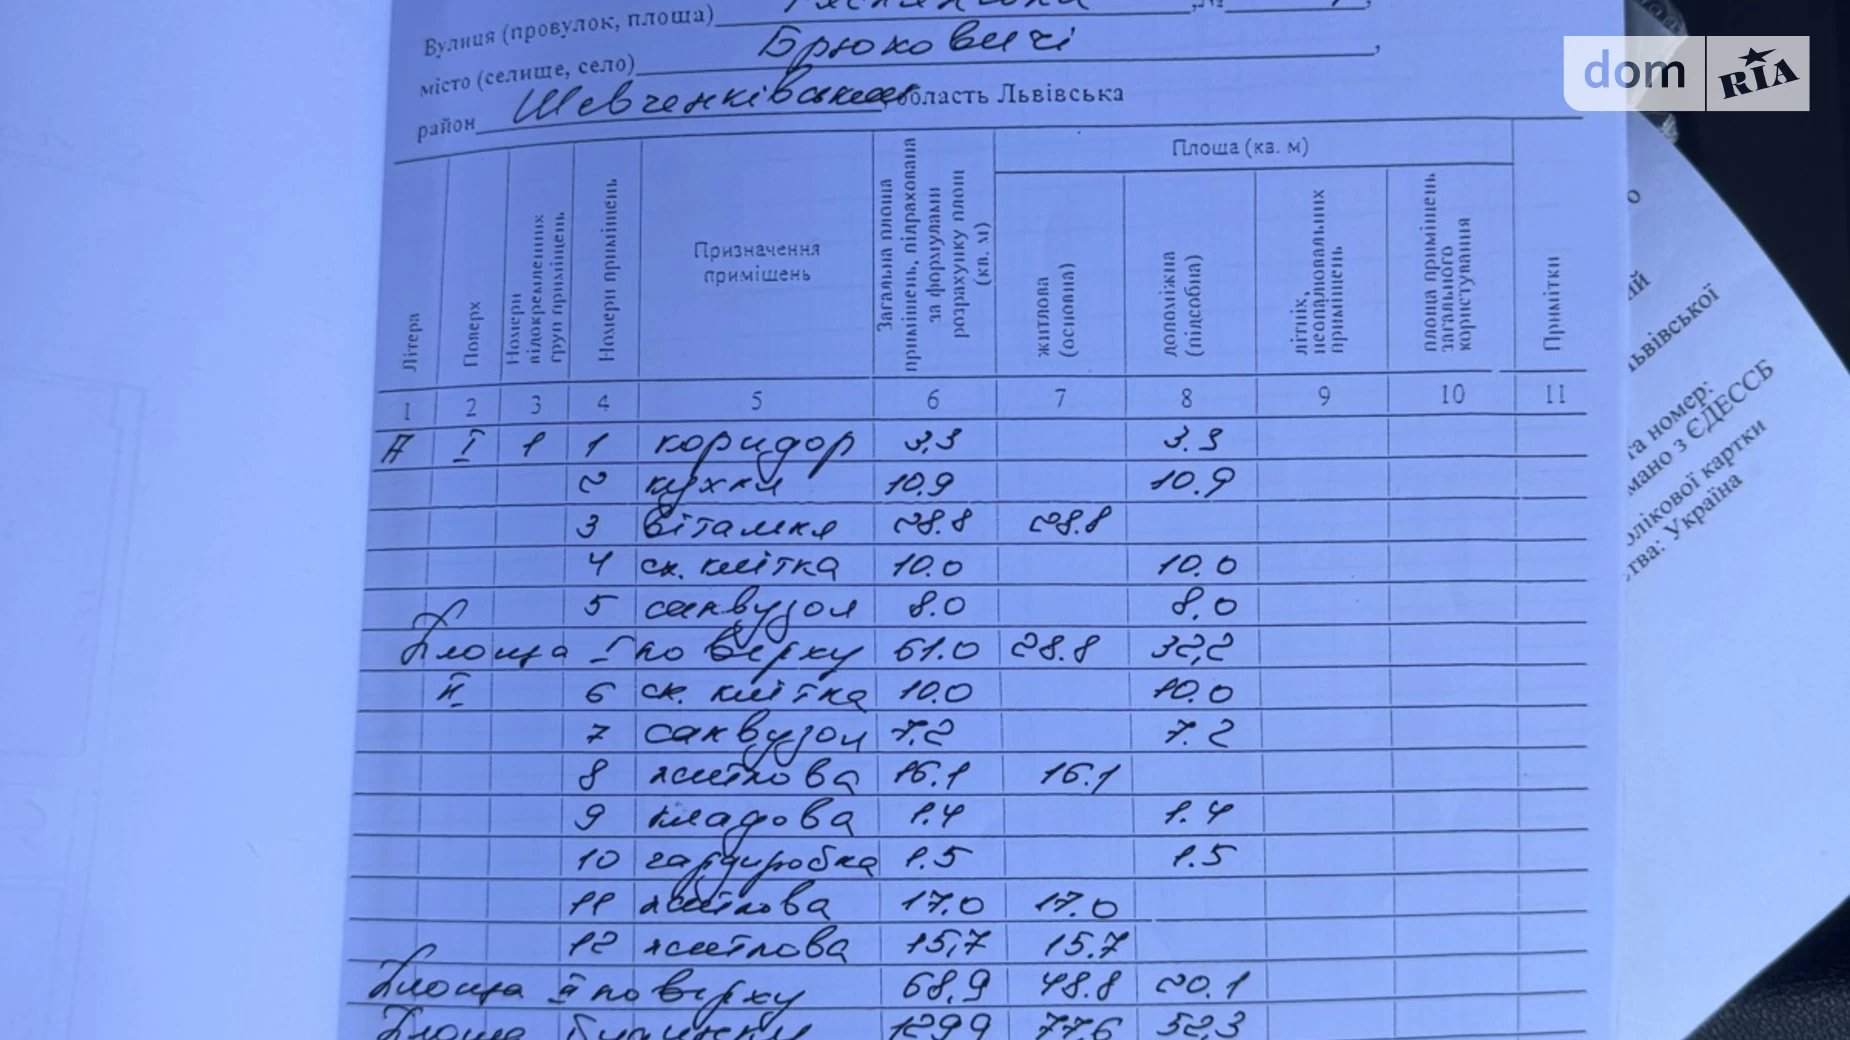 dom RIA
Вулиця (провулок, площа) ,№
місто (селище, село) Брюховичі,
район Шевченківська область Львівська
Літера
Поверх
Номери відокремлених груп приміщень
Номери приміщень
Призначення приміщень
Загальна площа приміщень, підрахована за формулами розрахунку площ (кв. м)
Площа (кв. м)
житлова (основна)
допоміжна (підсобна)
літніх, неопалювальних приміщень
площа приміщень загального користування
Примітки
1 2 3 4 5 6 7 8 9 10 11
А І 1 1 коридор 3,3 3.3
2 кухня 10.9 10.9
3 вітальня 28.8 28.8
4 сх. клітка 10.0 10.0
5 санвузол 8.0 8,0
Площа І поверху 61.0 28.8 32,2
ІІ 6 сх. клітка 10.0 10.0
7 санвузол 7.2 7.2
8 житлова 16.1 16.1
9 кладова 1.4 1.4
10 гардиробна 1.5 1.5
11 житлова 17.0 17.0
12 житлова 15,7 15.7
Площа ІІ поверху 68,9 48.8 20.1
Площа будинку 129.9 77,6 52,3
о
ий
Львівської
та номер:
мано з ЄДЕССБ
олікової картки
ства: Україна